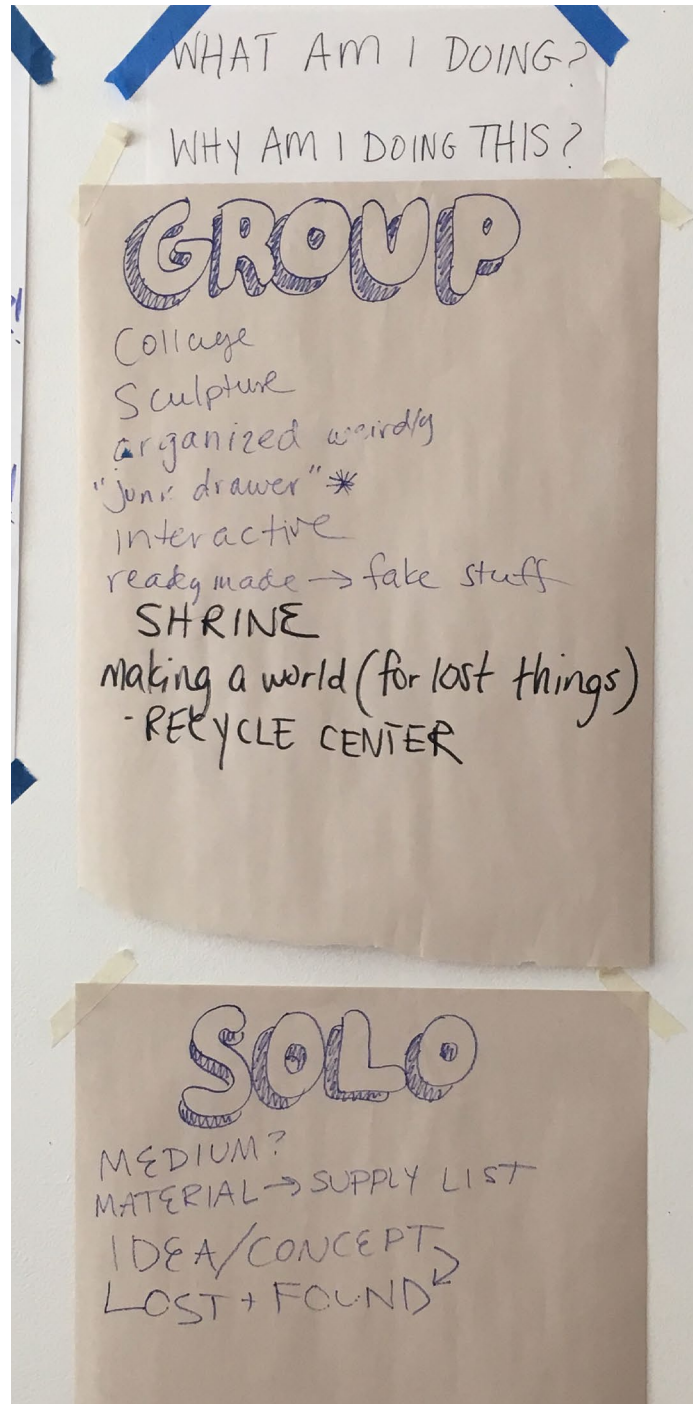 WHAT AM I DOING?
WHY AM I DOING THIS?
GROUP
Collage
Sculpture
organized weirdly
"junk drawer" *
interactive
readymade → fake stuff
SHRINE
making a world (for lost things)
- RECYCLE CENTER
SOLO
MEDIUM?
MATERIAL → SUPPLY LIST
IDEA/CONCEPT
LOST + FOUND